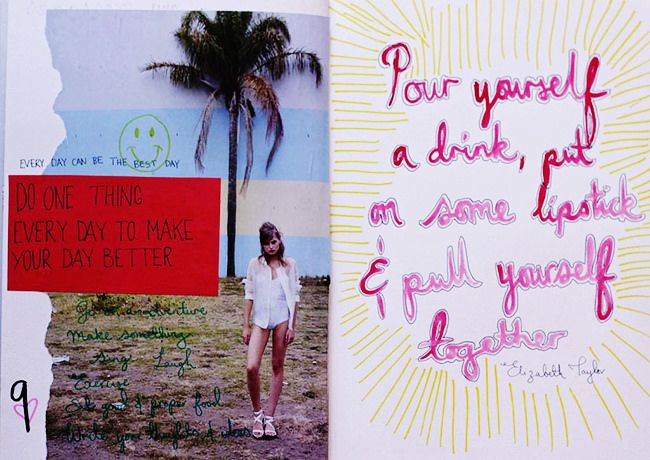 EVERY DAY CAN BE THE BEST DAY
DO ONE THING
EVERY DAY TO MAKE
YOUR DAY BETTER
Go on an adventure
Make something
Sing Laugh
Exercise
Eat good & proper food
Write your thoughts & ideas
9
Pour yourself
a drink, put
on some lipstick
& pull yourself
together
- Elizabeth Taylor